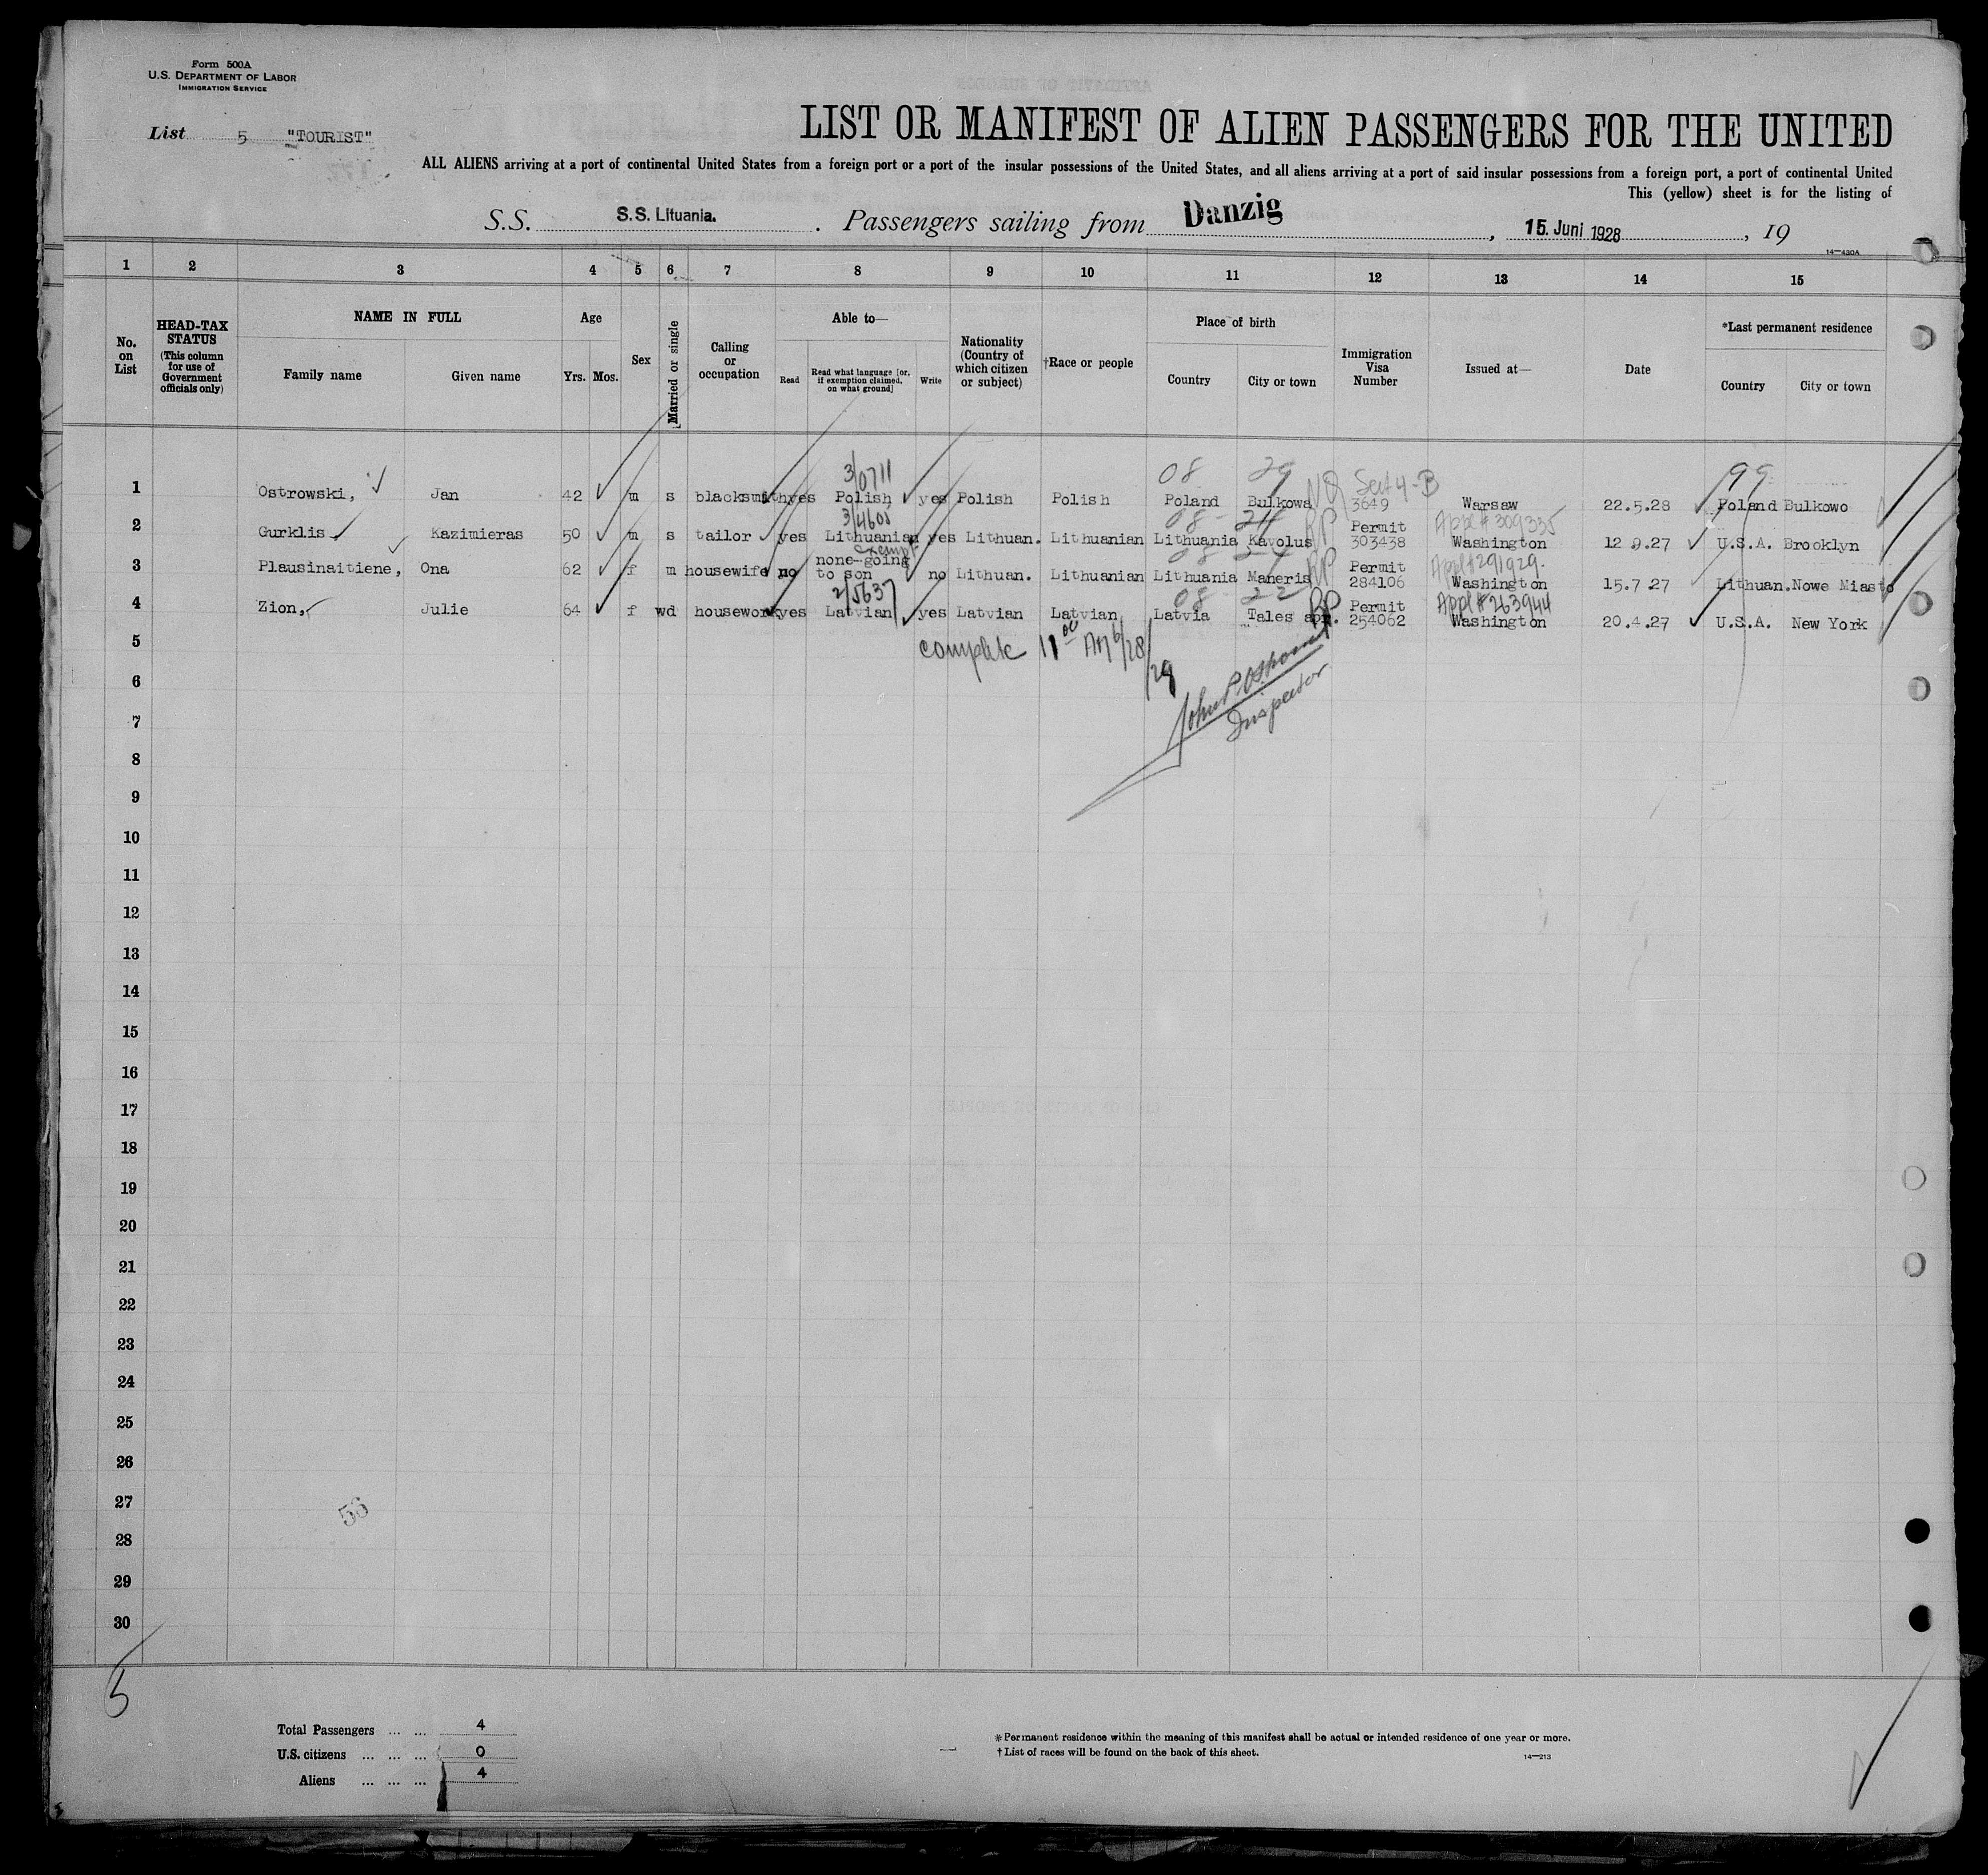 Form 500A
U.S. DEPARTMENT OF LABOR
IMMIGRATION SERVICE
List 5 "TOURIST"
LIST OR MANIFEST OF ALIEN PASSENGERS FOR THE UNITED
ALL ALIENS arriving at a port of continental United States from a foreign port or a port of the insular possessions of the United States, and all aliens arriving at a port of said insular possessions from a foreign port, a port of continental United
This (yellow) sheet is for the listing of
S.S. S.S. Lituania. . Passengers sailing from Danzig , 15. Juni 1928 , 19
14—430A
1 2 3 4 5 6 7 8 9 10 11 12 13 14 15
No. on List
HEAD-TAX STATUS (This column for use of Government officials only)
NAME IN FULL
Family name
Given name
Age
Yrs. Mos.
Sex
Married or single
Calling or occupation
Able to—
Read
Read what language [or, if exemption claimed, on what ground]
Write
Nationality (Country of which citizen or subject)
†Race or people
Place of birth
Country
City or town
Immigration Visa Number
Issued at—
Date
*Last permanent residence
Country
City or town
3/0711 08 29 NQ Sect 4-B 99
1 Ostrowski, Jan 42 m s blacksmith yes Polish yes Polish Polish Poland Bulkowa 3649 Warsaw 22.5.28 Poland Bulkowo
3/4605 08 - 24 RP Permit Appl # 309335
2 Gurklis Kazimieras 50 m s tailor yes Lithuanian yes Lithuan. Lithuanian Lithuania Kavolus 303438 Washington 12 9.27 U.S.A. Brooklyn
exempt none-going 08 24 RP Permit Appl # 291929.
3 Plausinaitiene, Ona 62 f m housewife no to son no Lithuan. Lithuanian Lithuania Maneris 284106 Washington 15.7.27 Lithuan. Nowe Miasto
2/5637 08 22 RP Permit Appl # 263944
4 Zion, Julie 64 f wd housework yes Latvian yes Latvian Latvian Latvia Tales apr. 254062 Washington 20.4.27 U.S.A. New York
5 complete 11 00 AM 6/28/28
6
John P. Osborne
Inspector
7
8
9
10
11
12
13
14
15
16
17
18
19
20
21
22
23
24
25
26
27
56
28
29
30
5
Total Passengers ... ... 4
U.S. citizens ... ... ... 0
Aliens ... ... ... 4
*Permanent residence within the meaning of this manifest shall be actual or intended residence of one year or more.
†List of races will be found on the back of this sheet.
14—213